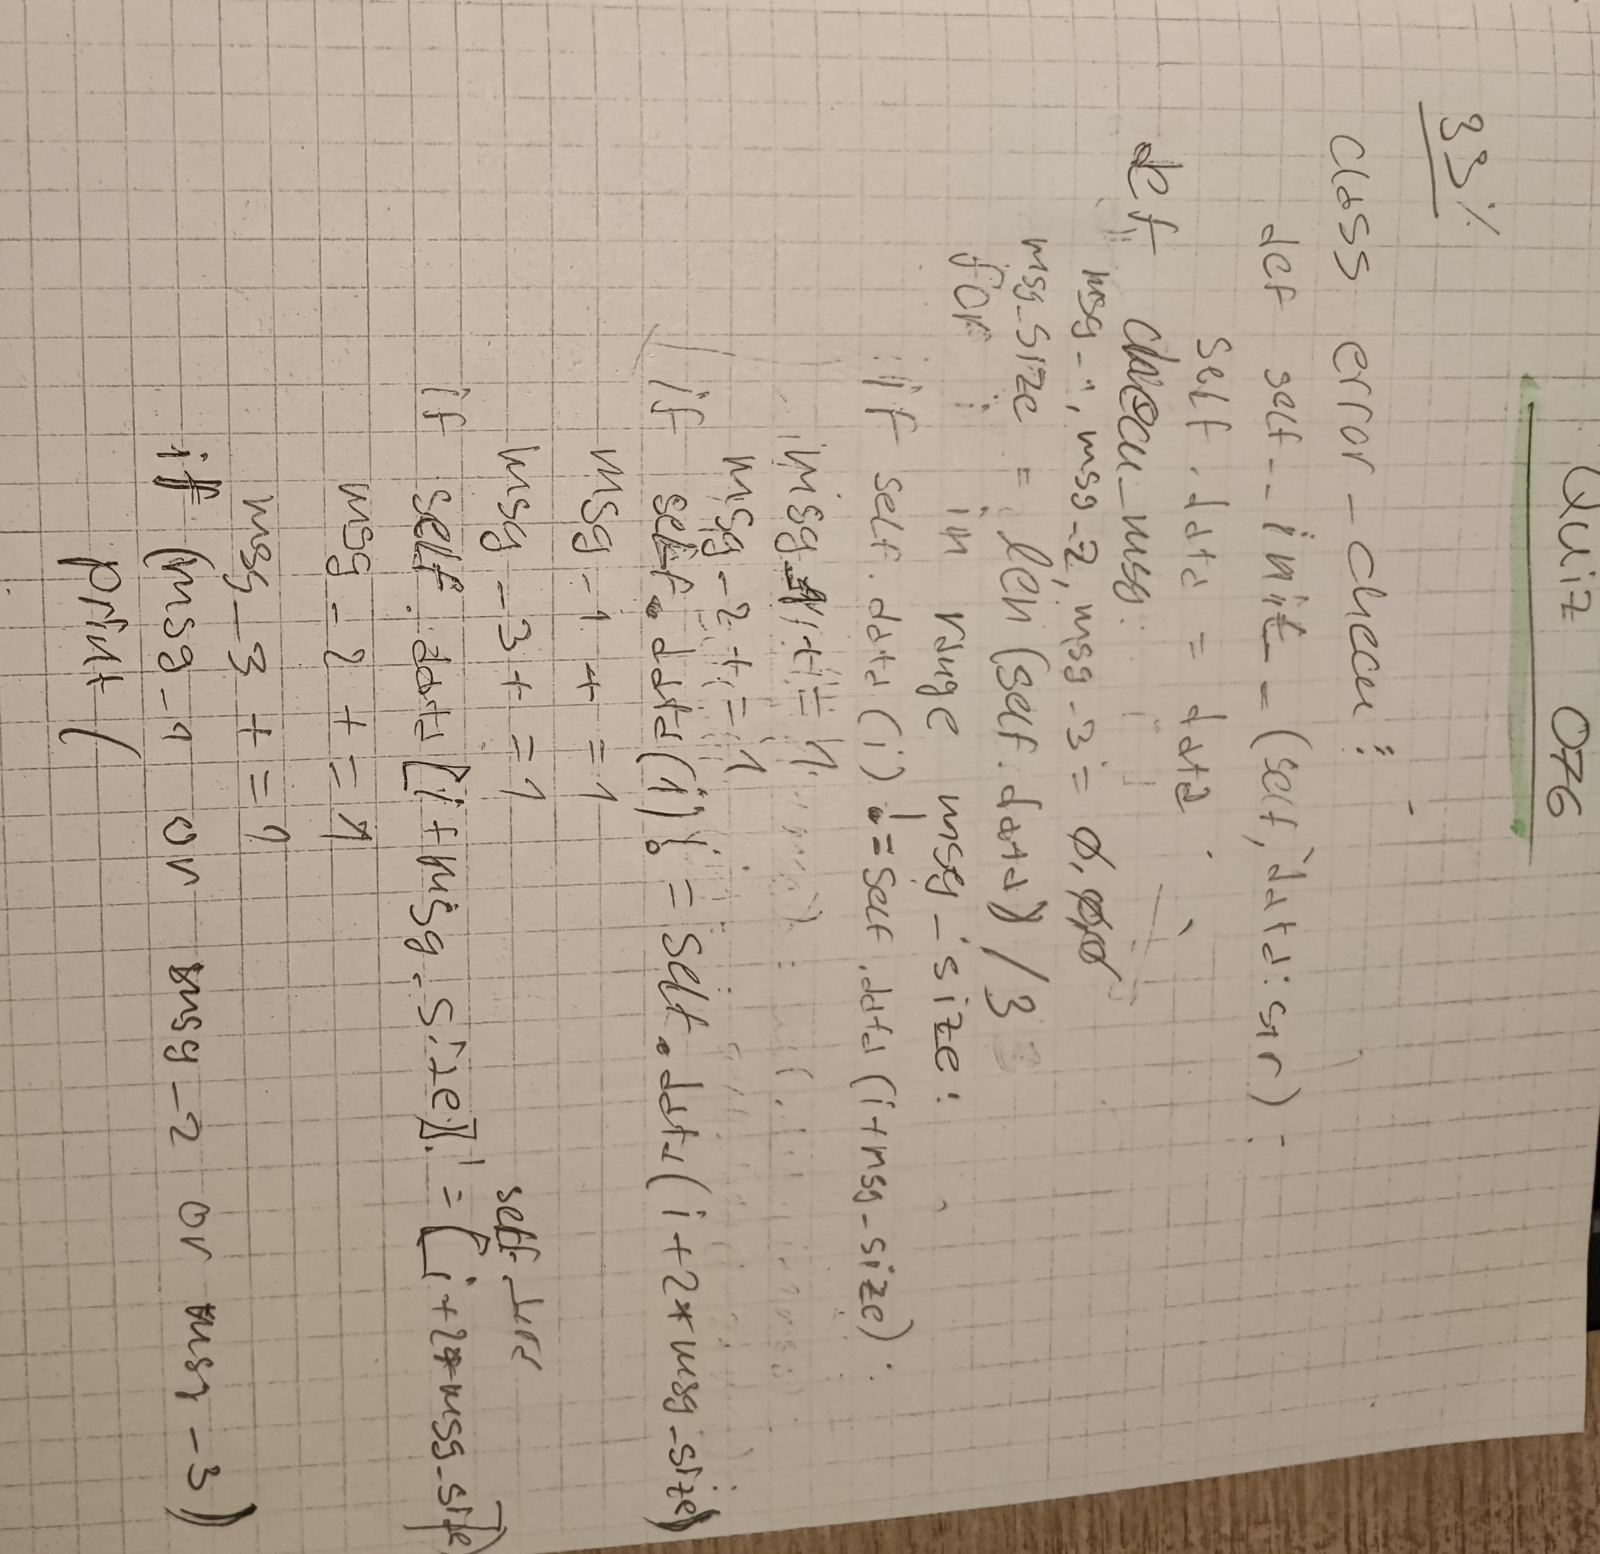 Quiz 076
33%
class error-check:
def self--init--(self, data: str):
self.data = data
def check_msg:
msg-1, msg-2, msg-3 = 0,
msg-size = len(self.data)/3
for i in range msg-size:
if self.data(i) != self.data(i+msg-size):
msg-1 += 1
msg-2 += 1
if self.data(i) != self.data(i+2*msg-size)
msg-1 += 1
msg-3 += 1
self.data
if self.data[i+msg-size] != [i+2*msg-size]
msg-2 += 1
msg-3 += 1
if (msg-1 or msg-2 or msg-3)
print(